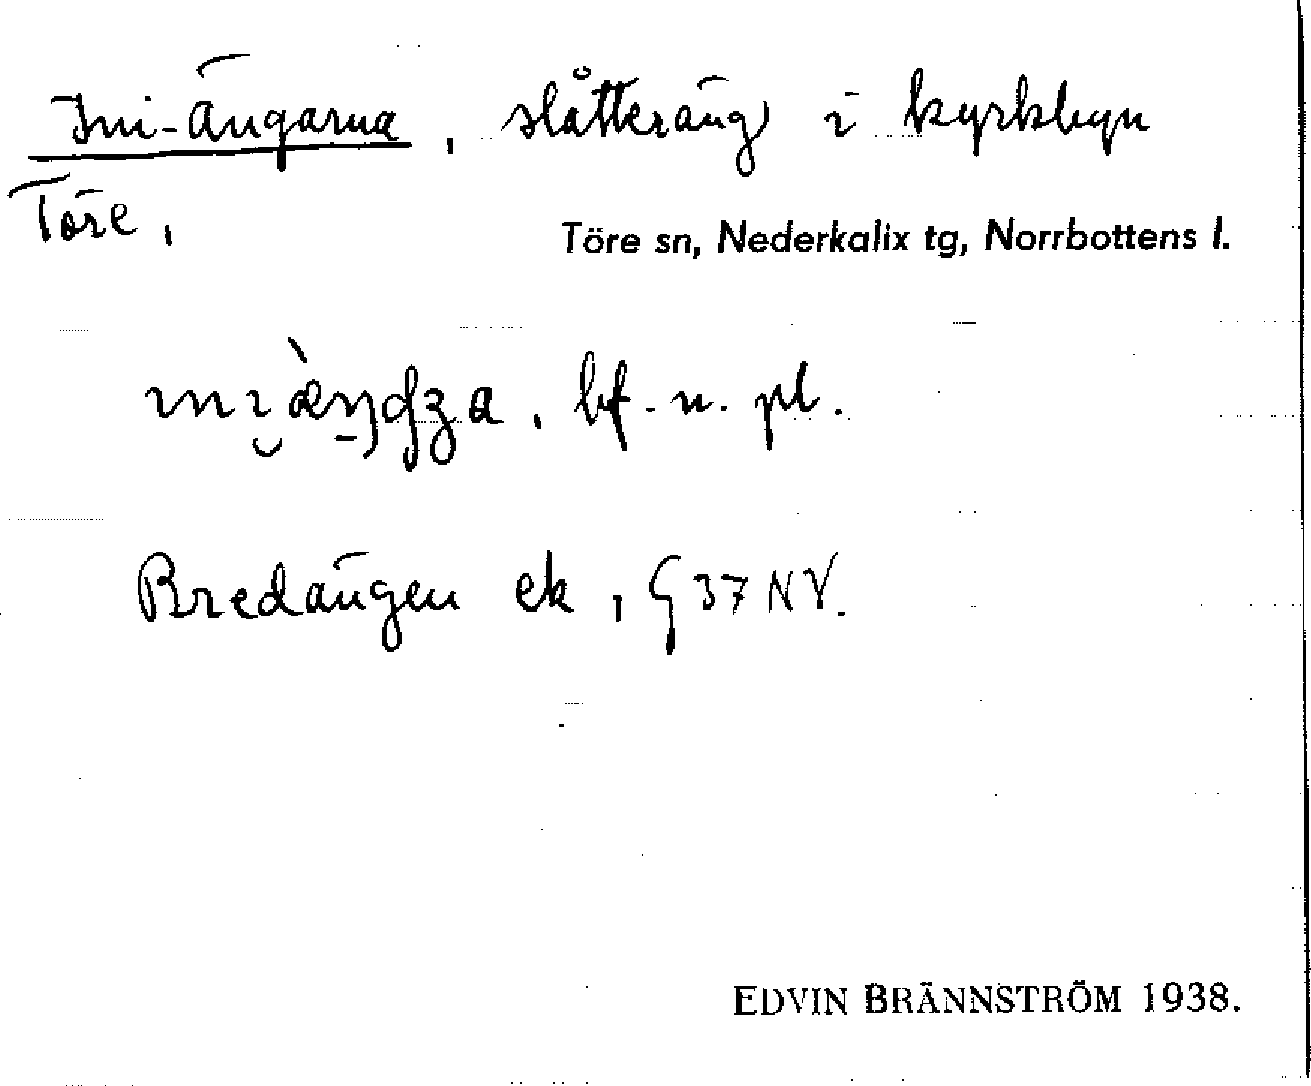 Ini-ängarna, slåtteräng i kyrkbyn
Töre,
Töre sn, Nederkalix tg, Norrbottens l.
bf. n. pl.
Bredängen ek, § 37 NV.
EDVIN BRÄNNSTRÖM 1938.